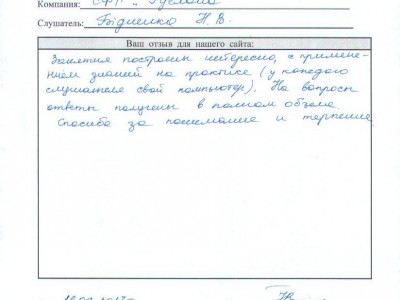 Компания:
Слушатель: Бідненко Н. В.
Ваш отзыв для нашего сайта:
Занятия построены интересно, с примене-
нием знаний на практике (у каждого
слушателя свой компьютер). На вопросы
ответы получены в полном объеме.
Спасибо за понимание и терпение